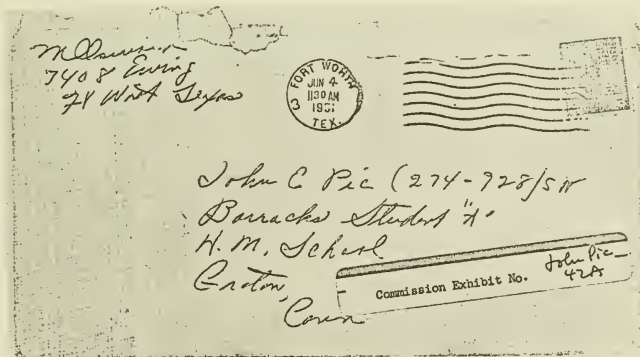 M Oswald
7408 Ewing
Ft Worth Texas
FORT WORTH
JUN 4
1130 AM
1951
TEX.
3
John E Pic (274-928) SN
Barracks Student "A"
H. M. School
Groton,
Conn
Commission Exhibit No.
John Pic
42A